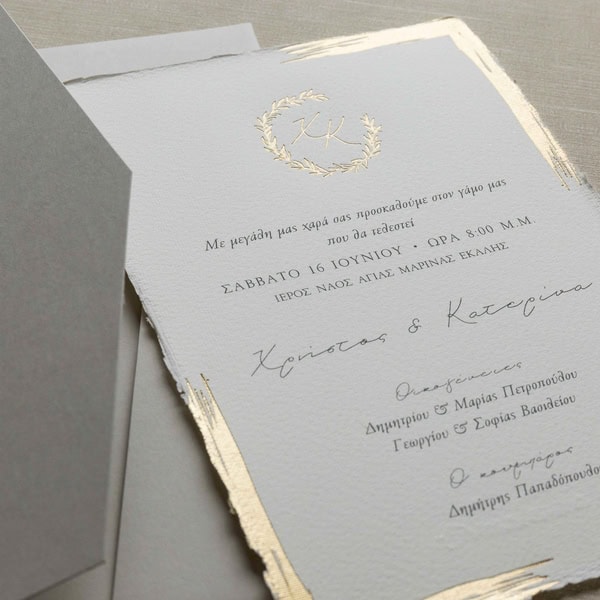 ΧΚ
Με μεγάλη μας χαρά σας προσκαλούμε στον γάμο μας
που θα τελεστεί
ΣΑΒΒΑΤΟ 16 ΙΟΥΝΙΟΥ • ΩΡΑ 8:00 Μ.Μ.
ΙΕΡΟΣ ΝΑΟΣ ΑΓΙΑΣ ΜΑΡΙΝΑΣ ΕΚΑΛΗΣ
Χρήστος & Κατερίνα
Οικογένειες
Δημητρίου & Μαρίας Πετροπούλου
Γεωργίου & Σοφίας Βασιλείου
Ο κουμπάρος
Δημήτρης Παπαδόπουλο